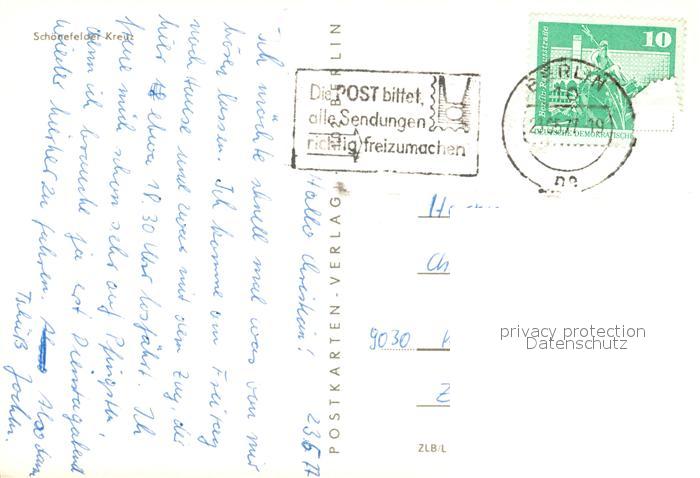 Schönefelder Kreuz
Hallo Christian! 23.5.77
ich möchte schnell mal was von mir
hören lassen. Ich komme am Freitag
nach Hause und zwar mit dem Zug, der
hier etwa 18.30 Uhr losfährt. Ich
freue mich schon sehr auf Pfingsten,
denn ich brauche ja erst Dienstagabend
wieder hierher zu fahren. Also dann
Tschüß Jochen.
POSTKARTEN-VERLAG BERLIN
Die POST bittet,
alle Sendungen
richtig freizumachen
BERLIN
10
Berlin, Rathausstraße
DEMOKRATISCHE
9030
privacy protection
Datenschutz
ZLB/L